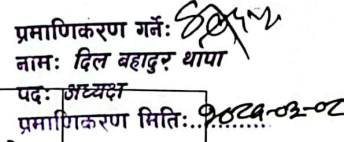 प्रमाणिकरण गर्ने:
नामः दिल बहादुर थापा
पदः अध्यक्ष
प्रमाणिकरण मितिः